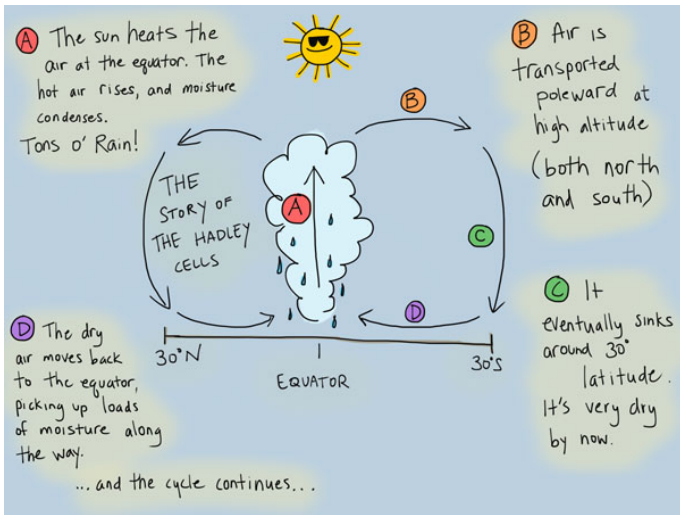 A The sun heats the
air at the equator. The
hot air rises, and moisture
condenses.
Tons o' Rain!
B Air is
transported
poleward at
high altitude
(both north
and south)
B
THE
STORY OF
THE HADLEY
CELLS
A
C
D
C It
eventually sinks
around 30°
latitude.
It's very dry
by now.
D The dry
air moves back
to the equator,
picking up loads
of moisture along
the way.
30°N
EQUATOR
30°S
...and the cycle continues...